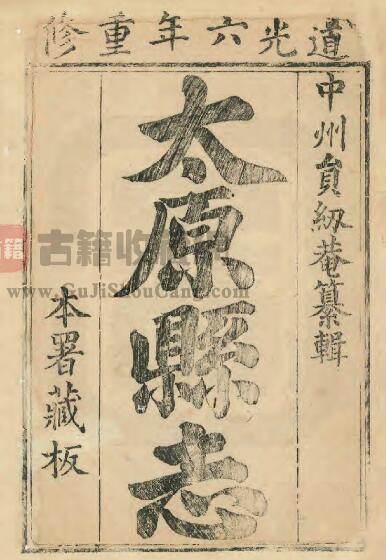 道光六年重修
中州員紉菴纂輯
太原縣志
本署藏板
古籍收藏
www.GuJiShouCang.com